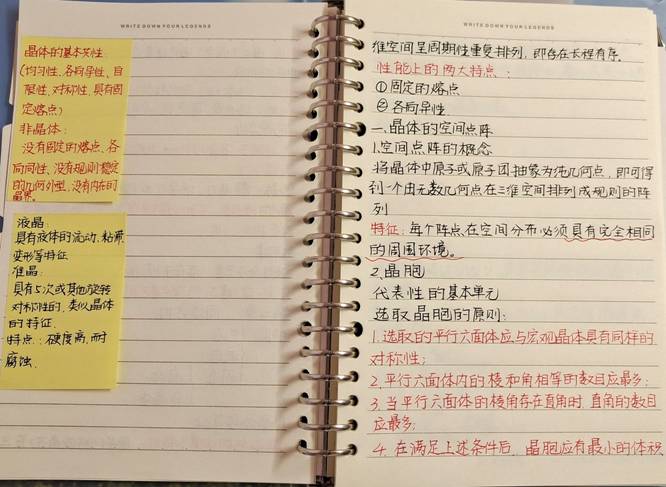 WRITE DOWN YOUR LEGENDS
晶体的基本共性:
(均匀性、各向异性、自
限性、对称性、具有固
定熔点)
非晶体:
没有固定的熔点、各
向同性、没有规则稳定
的几何外型、没有内在的
晶界。
液晶:
具有液体的流动、粘滞、
变形等特征
准晶:
具有5次或其他旋转
对称性的、类似晶体
的特征.
特点:硬度高,耐
腐蚀.
WRITE DOWN YOUR LEGENDS
维空间呈周期性重复排列,即存在长程有序.
性能上的两大特点:
①固定的熔点
②各向异性
一.晶体的空间点阵
1.空间点阵的概念
将晶体中原子或原子团抽象为纯几何点,即可得
到一个由无数几何点在三维空间排列成规则的阵
列
特征:每个阵点在空间分布必须具有完全相同
的周围环境。
2.晶胞
代表性的基本单元
选取晶胞的原则:
1.选取的平行六面体应与宏观晶体具有同样的
对称性;
2.平行六面体内的棱和角相等的数目应最多;
3.当平行六面体的棱角存在直角时,直角的数目
应最多;
4.在满足上述条件后,晶胞应有最小的体积